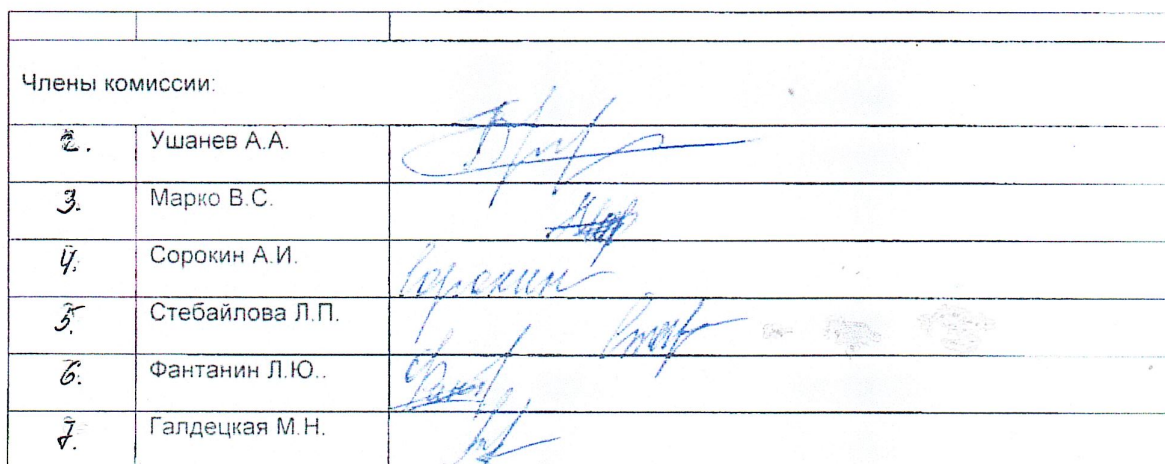 Члены комиссии:
2. Ушанев А.А.
3. Марко В.С.
4. Сорокин А.И. Сорокин
5. Стебайлова Л.П.
6. Фантанин Л.Ю..
7. Галдецкая М.Н.